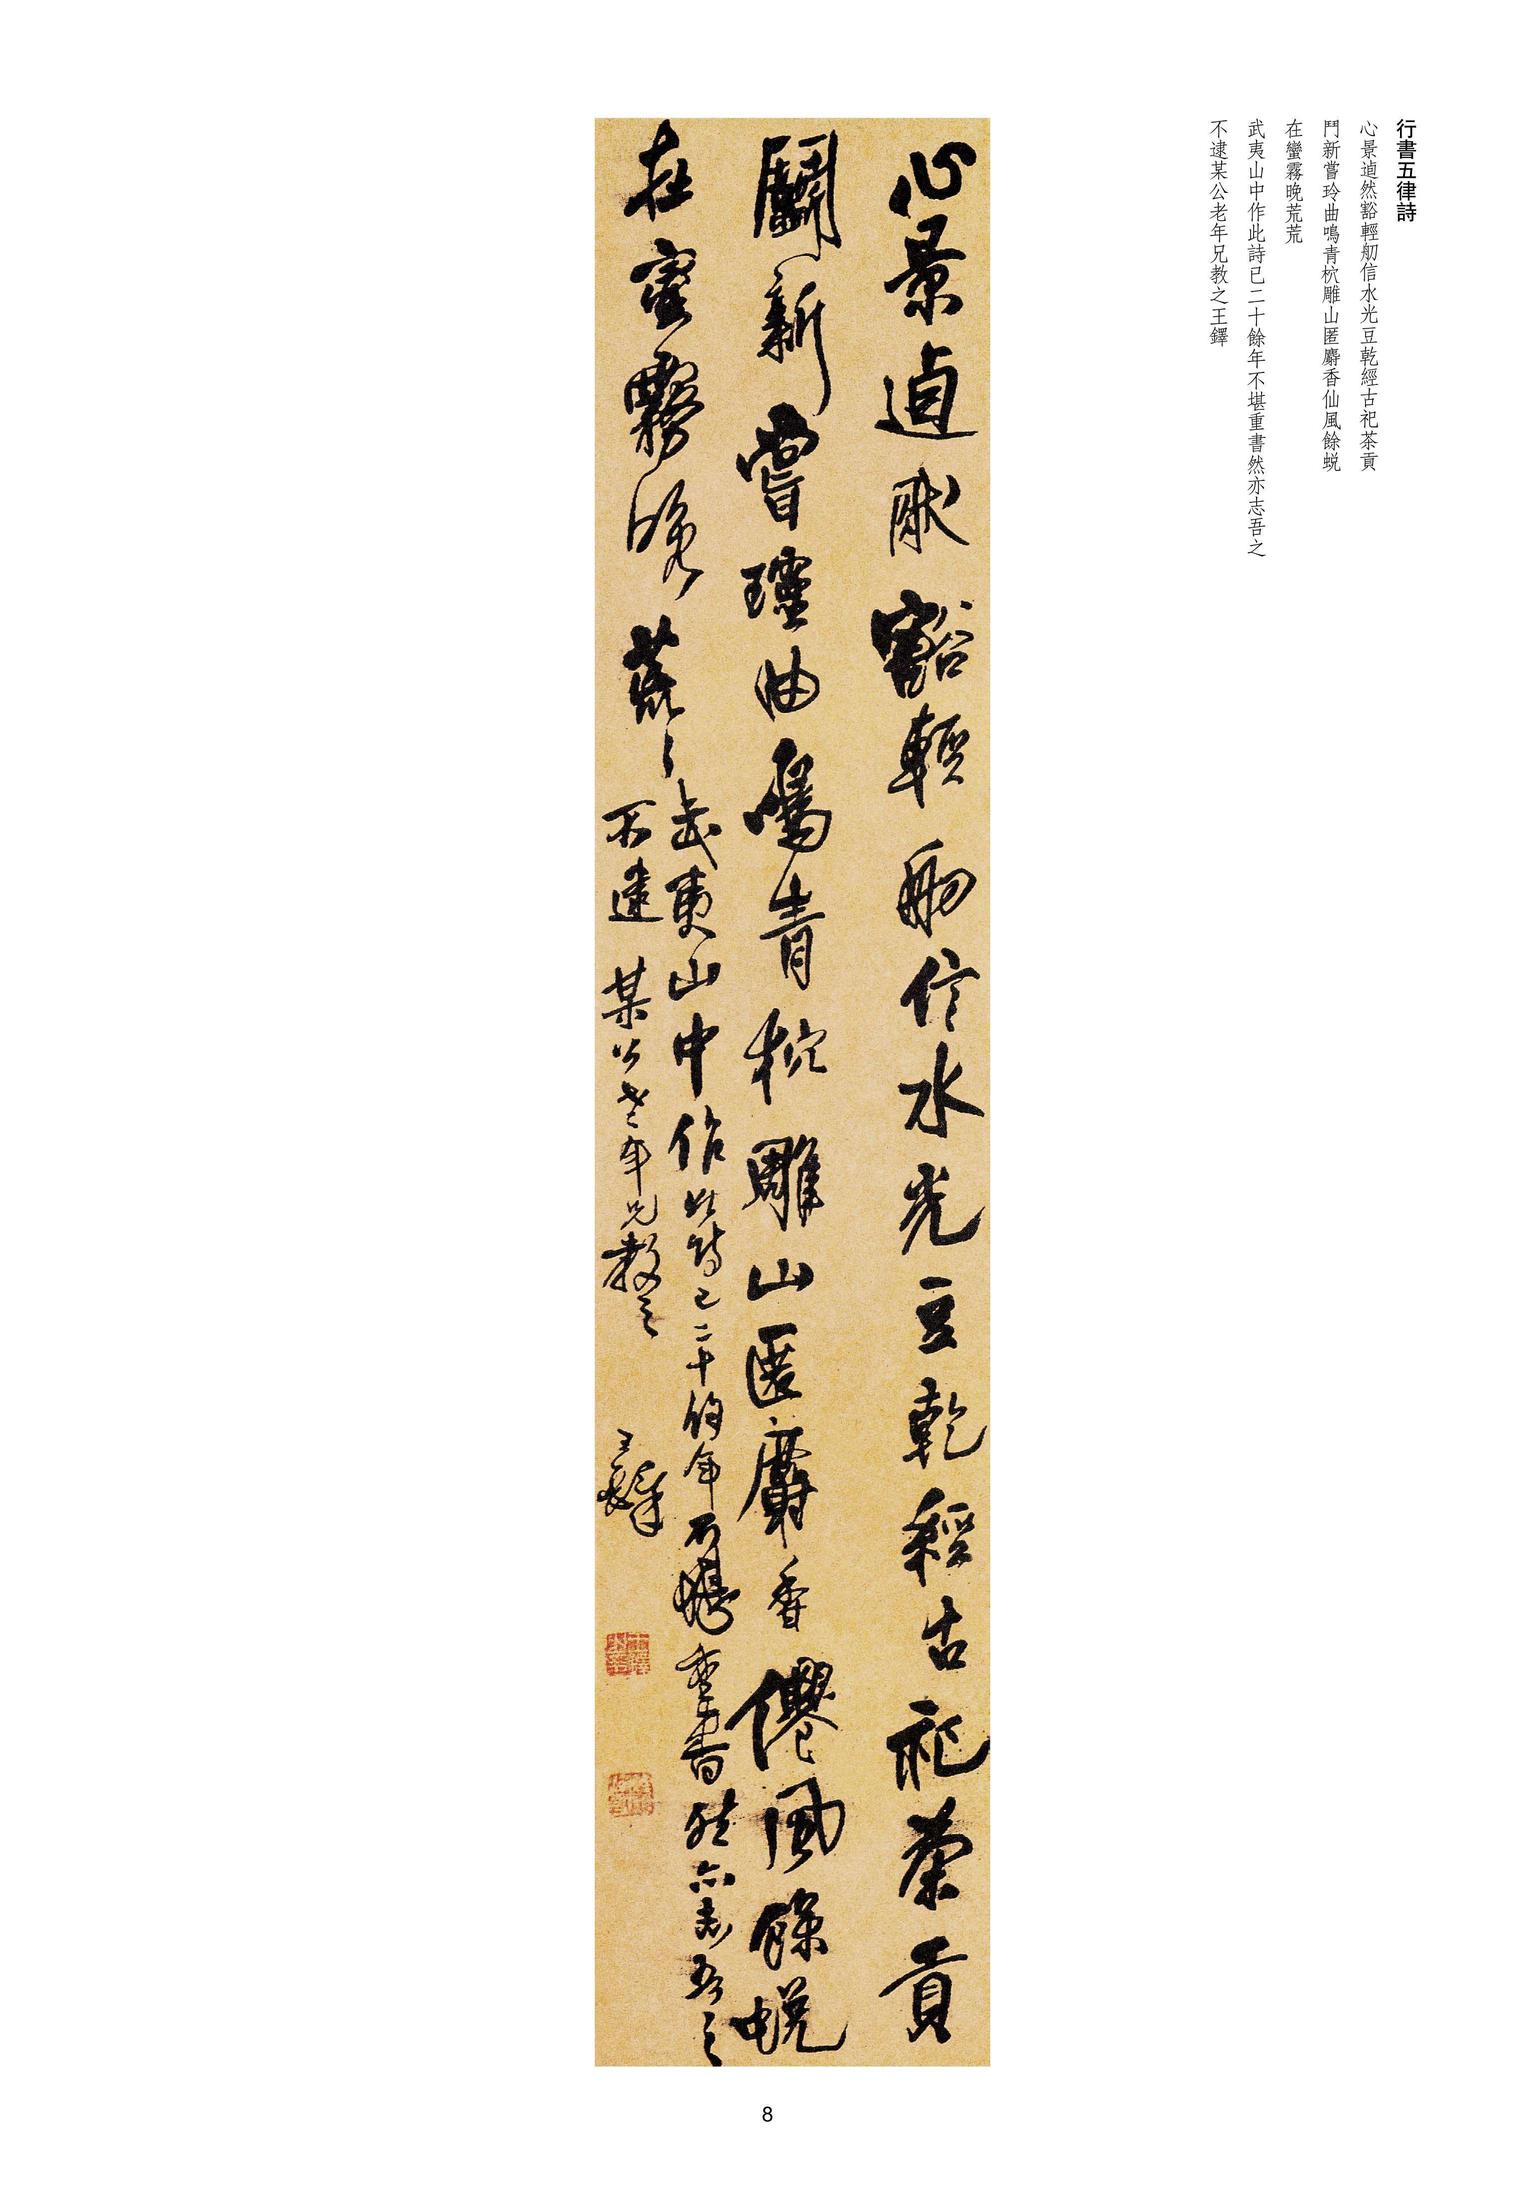 行書五律詩
心景逌然豁輕舠信水光豆乾經古祀茶貢
鬥新嘗玲曲鳴青杭雕山匿麝香仙風餘蜕
在蠻霧晚荒荒
武夷山中作此詩已二十餘年不堪重書然亦志吾之
不逮某公老年兄教之王鐸
心景逌然豁輕舠信水光豆乾經古祀茶貢
鬭新嘗曲鳴青雕山匿麝香僊風餘蜕
在蠻霧晚荒〻
武夷山中作此詩已二十餘年不堪重書然亦志吾之
不逮某公老年兄教之 王鐸
8